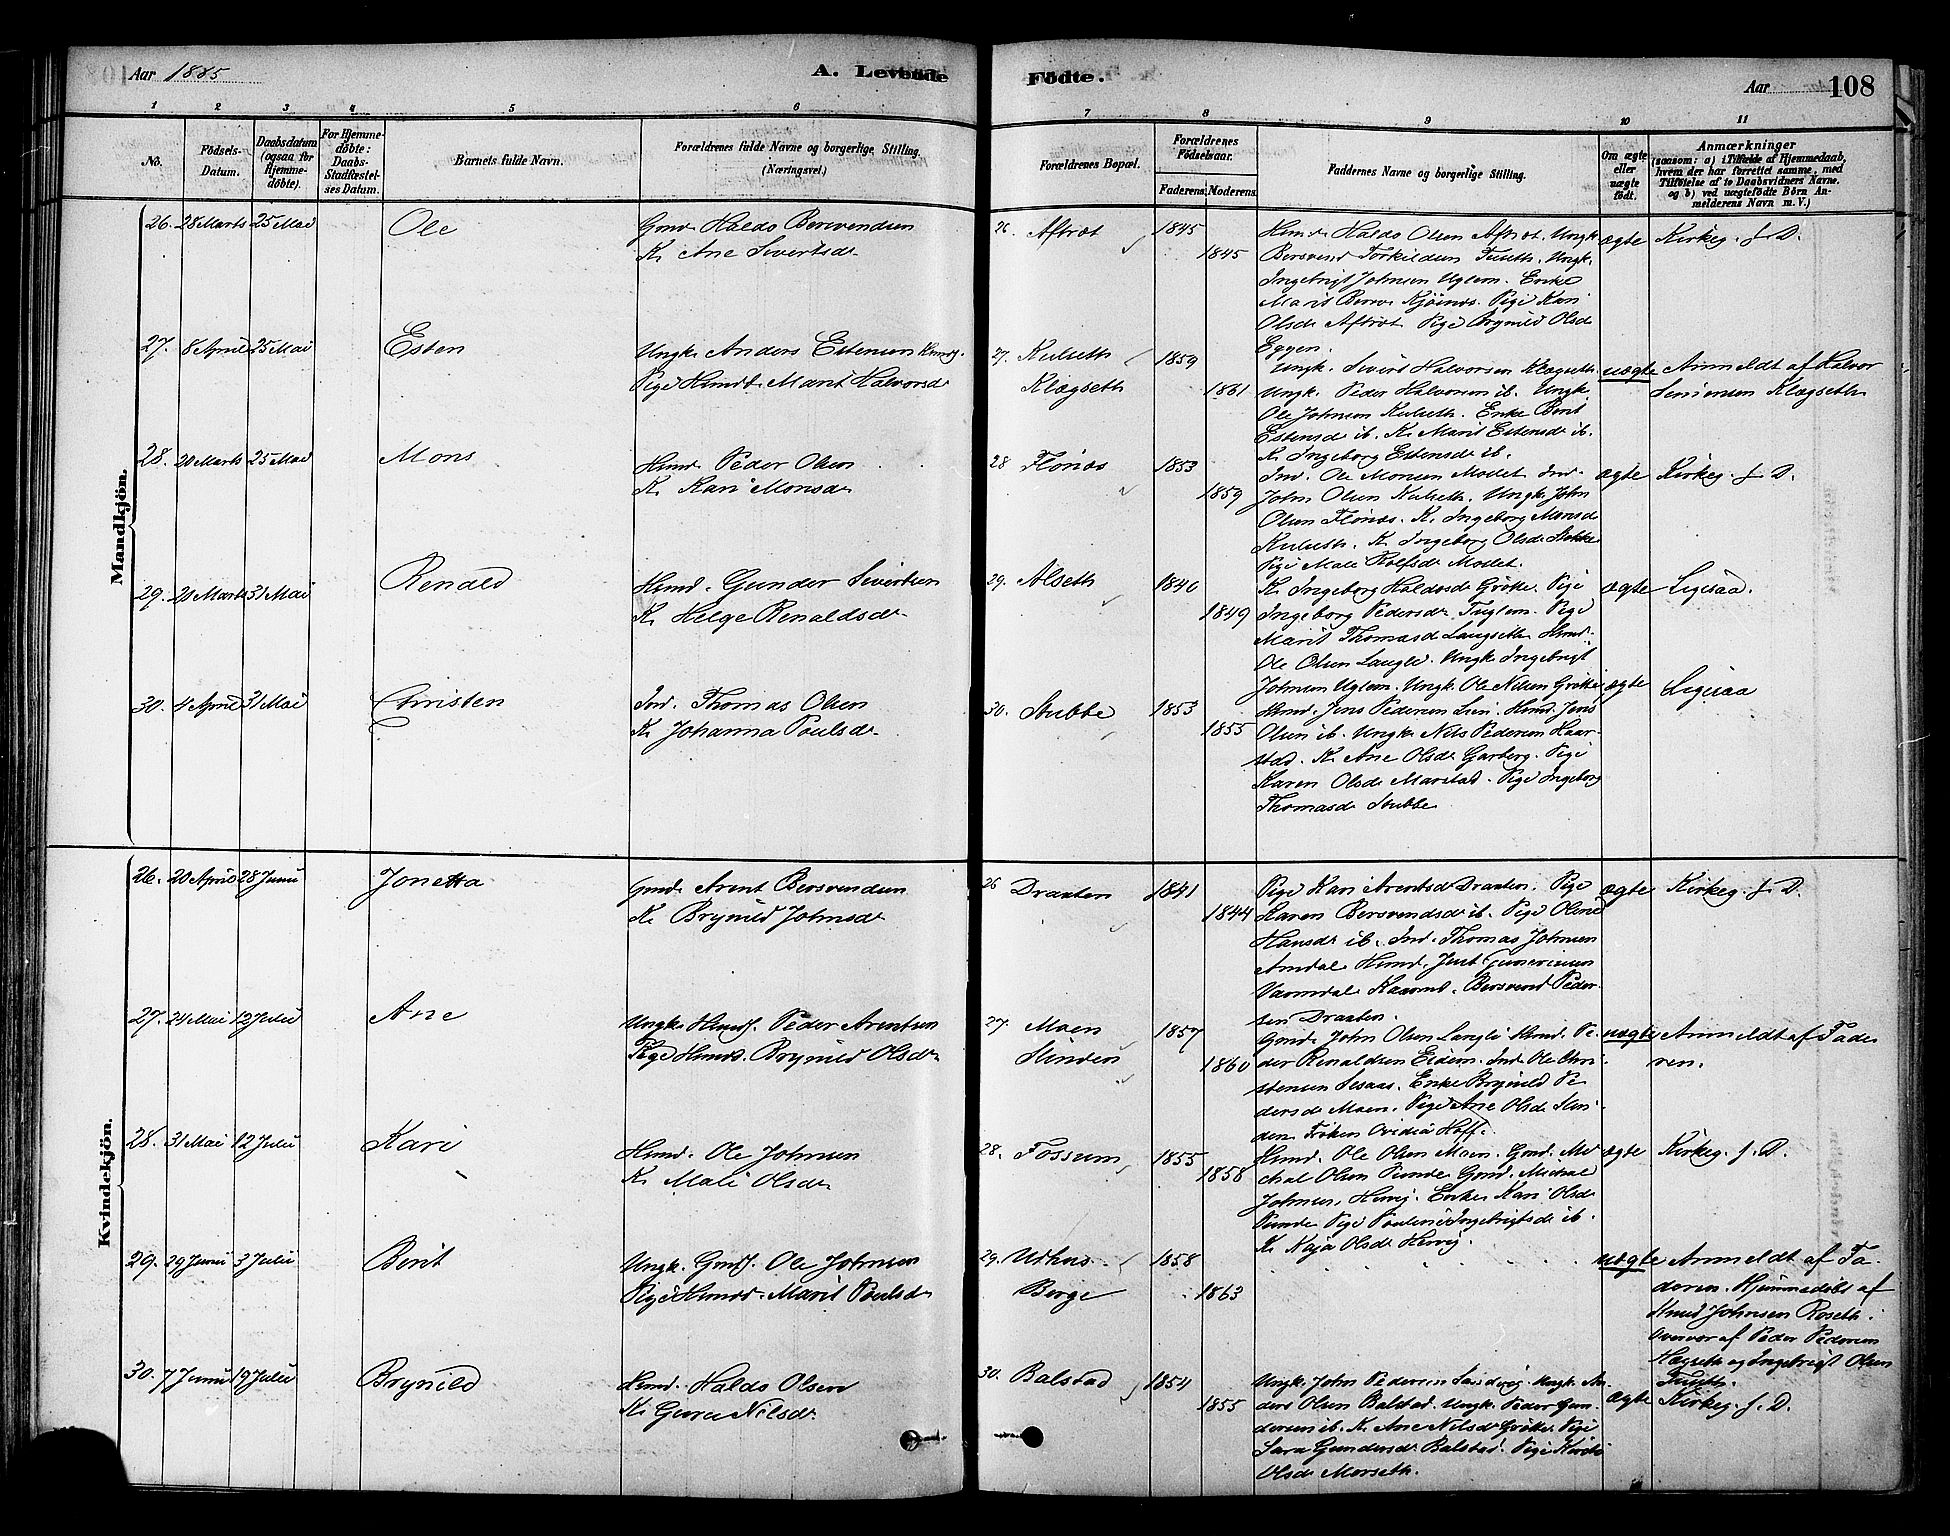 Aar 1885
A. Levende
Födte.
Aar
108
1 2 3 4 5 6 7 8 9 10 11
No.
Födsels-
Datum.
Daabsdatum
(ogsaa for
Hjemme-
döbte).
For Hjemme-
döbte:
Daabs-
Stadfæstel-
ses Datum.
Barnets fulde Navn.
Forældrenes fulde Navne og borgerlige Stilling
(Næringsvei.)
Forældrenes Bopæl.
Forældrenes
Födselsaar.
Faderens. Moderens.
Faddernes Navne og borgerlige Stilling.
Om ægte
eller
uægte
födt.
Anmærkninger
(saasom: a) i Tilfælde af Hjemmedaab,
hvem der har forrettet samme, med
Tilföielse af to Daabsvidners Navne,
og b) ved uægtefödte Börn An-
melderens Navn m. V.)
Mandkjön.
26. 28 Marts 25 Mai
Ole
Gmd. Haldo Bersvendsen
K. Ane Sivertsdr
26. Aftret
1845
1845
Hmd. Haldo Olsen Aftret. Ungk.
Bersvend Torkildsen Tuseth. Ungk.
Ingebrigt Johnsen Uglem. Enke
Marit Kjösnes. Pige Kari
Olsdr Aftret Pige Brynild Olsdr
Eggen.
ægte
Kirkeg. f. D.
27. 8 April 25 Mai
Esten
Ungk. Anders Estensen
Pige Hmdt. Marit Halvorsdr
27. Kulseth
Klægseth
1859
1861
Ungk. Sivert Halvorsen Klægseth
Ungk. Peder Halvorsen ib. Ungk.
Ole Johnsen Kulseth. Enke Berit
Estensdr ib. K. Marit Estensdr ib.
K. Ingeborg Estensdr ib.
uægte
Anmeldt af Halvor
Klægseth
28. 20 Marts 25 Mai
Mons
Hmd. Peder Olsen
K. Kari Monsdr
28 Flönes
1853
1859
Ind. Ole Monsen Moslet. Ind.
John Olsen Kulseth. Ungk. John
Olsen Flönes. K. Ingeborg Monsdr
Kulseth. K. Ingeborg Olsdr Stokke
Pige Mali Rolfsdr Moslet.
ægte
Kirkeg. f. D.
29. 21 Marts 31 Mai
Renald
Hmd. Gunder Sivertsen
K. Helge Renaldsdr
29. Alseth
1840
1849
K. Ingeborg Haldosdr Grötte. Pige
Ingeborg Pedersdr Fuglem. Pige
Marit Thomasdr Langseth Hmd.
Ole Olsen Langli. Ungk. Ingebrigt
Johnsen Uglem. Ungk. Ole Nilsen Grötte
ægte
Ligesaa.
30. 4 April 31 Mai
Christen
Ind. Thomas Olsen
K. Johanna Poulsdr
30. Stubbe
1853
1855
Hmd. Jens Pedersen Lien. Hmd. Jens
Olsen ib. Ungk. Nils Pedersen Haar-
stad. K. Ane Olsdr Garberg. Pige
Karen Olsdr Marstad. Pige Ingeborg
Thomasdr Stubbe
ægte
Ligesaa
Kvindekjön.
26. 20 April 28 Juni
Jonetta
Gmd. Arent Bersvendsen
K. Brynild Johnsdr
26 Draxten
1841
1844
Pige Kari Arentsdr Draxten. Pige
Karen Bersvendsdr ib. Pige Oline
Hansdr ib. Ind. Thomas Johnsen
Amdal Hmd.
Bersvend Peder-
sen Draxten.
ægte
Kirkeg. f. D.
27. 24 Mai 12 Julii
Ane
Ungk. Hmdf. Peder Arentsen
Pige Hmds. Brynild Olsdr
27. Moen
Slinden
1857
1860
Gmd. John Olsen Langli Hmd. Pe-
der Renaldsen Eidem. Ind. Ole Chri-
stensen Sesaas. Enke Brynild Pe-
dersdr Moen. Pige Ane Olsdr Slin-
den. Fröken Ovidia Hoff.
uægte
Anmeldt af Fade
ren.
28. 31 Mai 12 Julii
Kari
Hmd. Ole Johnsen
K. Mali Olsdr
28. Fossum
1855
1858
Hmd. Ole Olsen Moen. Gmd. Mi-
chal Olsen Gmd. Michal
Johnsen. Enke Kari Olsdr
Pige Pouline Ingebrigtsdr ib.
K. Olsdr
ægte
Kirkeg. f. D.
29. 29 Juni 3 Julii
Berit
Ungk. Gmdf. Ole Johnsen
Pige Hmds. Marit Poulsdr
29. Udhus
Berge
1858
1863
uægte
Anmeldt af Fa-
deren. Hjemmedöbt af
Knud Johnsen Roseth.
Overvær af Peder Pedersen
Hægseth og Ingebrigt Olsen
Tuseth.
30. 7 Juni 19 Julii
Brynild
Hmd. Haldo Olsen
K. Guru Nilsdr
30. Balstad
1854
1855
Ungk. John Pedersen Ungk. An-
ders Olsen Balstad. Ungk. Peder Gun-
dersen ib. K. Ane Nilsdr Grötte. Pige
Sara Gundersdr Balstad. Pige
Olsdr Morseth.
ægte
Kirkeg. f. D.